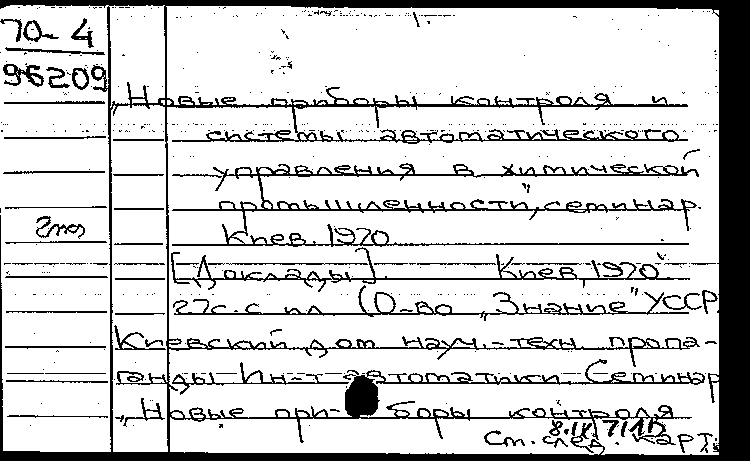 70-4
96209
„Новые приборы контроля и
системы автоматического
управления в химической
промышленности", семинар.
Киев. 1970
[Доклады]. Киев, 1970.
27с. с ил. (О-во „Знание" УССР.
Киевский дом науч.-техн. пропа-
ганды. Ин-т автоматики. Семинар
„Новые при- боры контроля
См. след. карт.